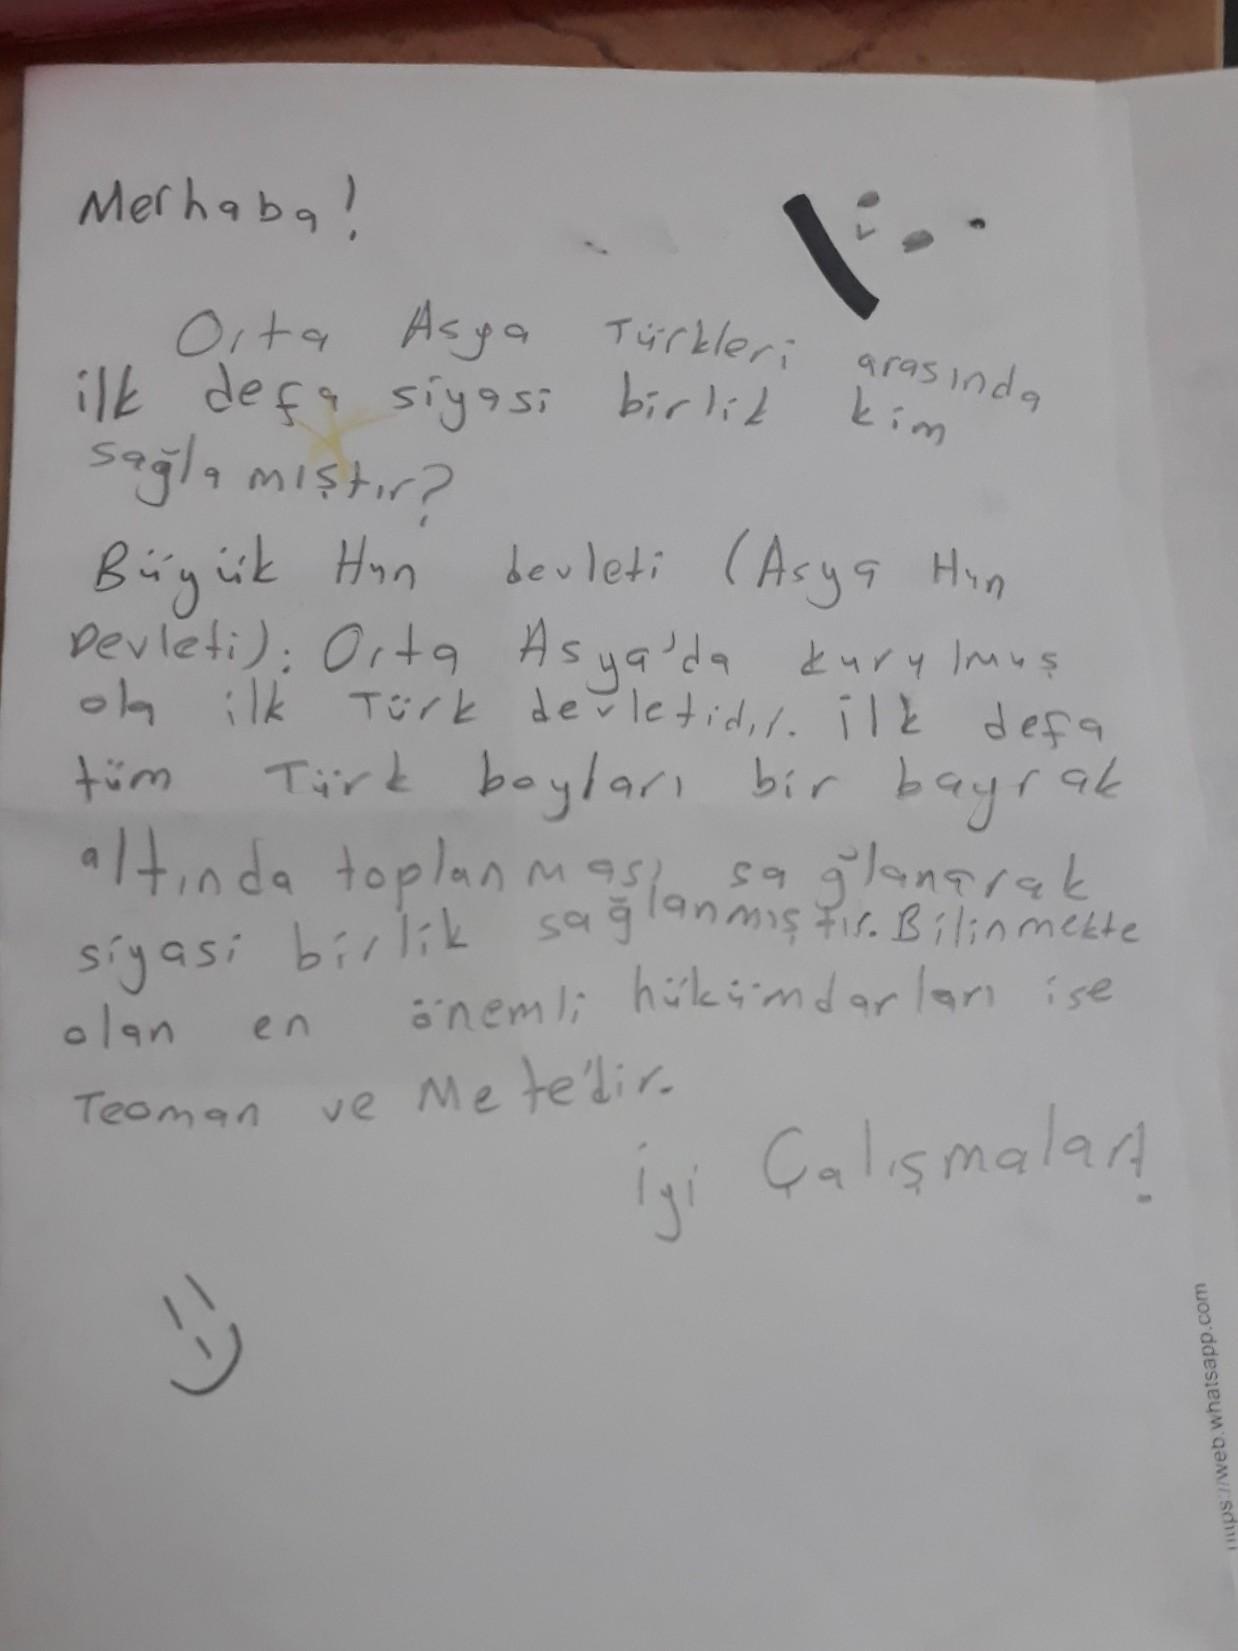 Merhaba!
Orta Asya Türkleri arasında
ilk defa siyasi birlik kim
sağlamıştır?
Büyük Hun devleti (Asya Hun
Devleti): Orta Asya'da kurulmuş
ola ilk Türk devletidir. İlk defa
tüm Türk boyları bir bayrak
altında toplanması sağlanarak
siyasi birlik sağlanmıştır. Bilinmekte
olan en önemli hükümdarları ise
Teoman ve Mete'dir.
İyi Çalışmalar!
https://web.whatsapp.com